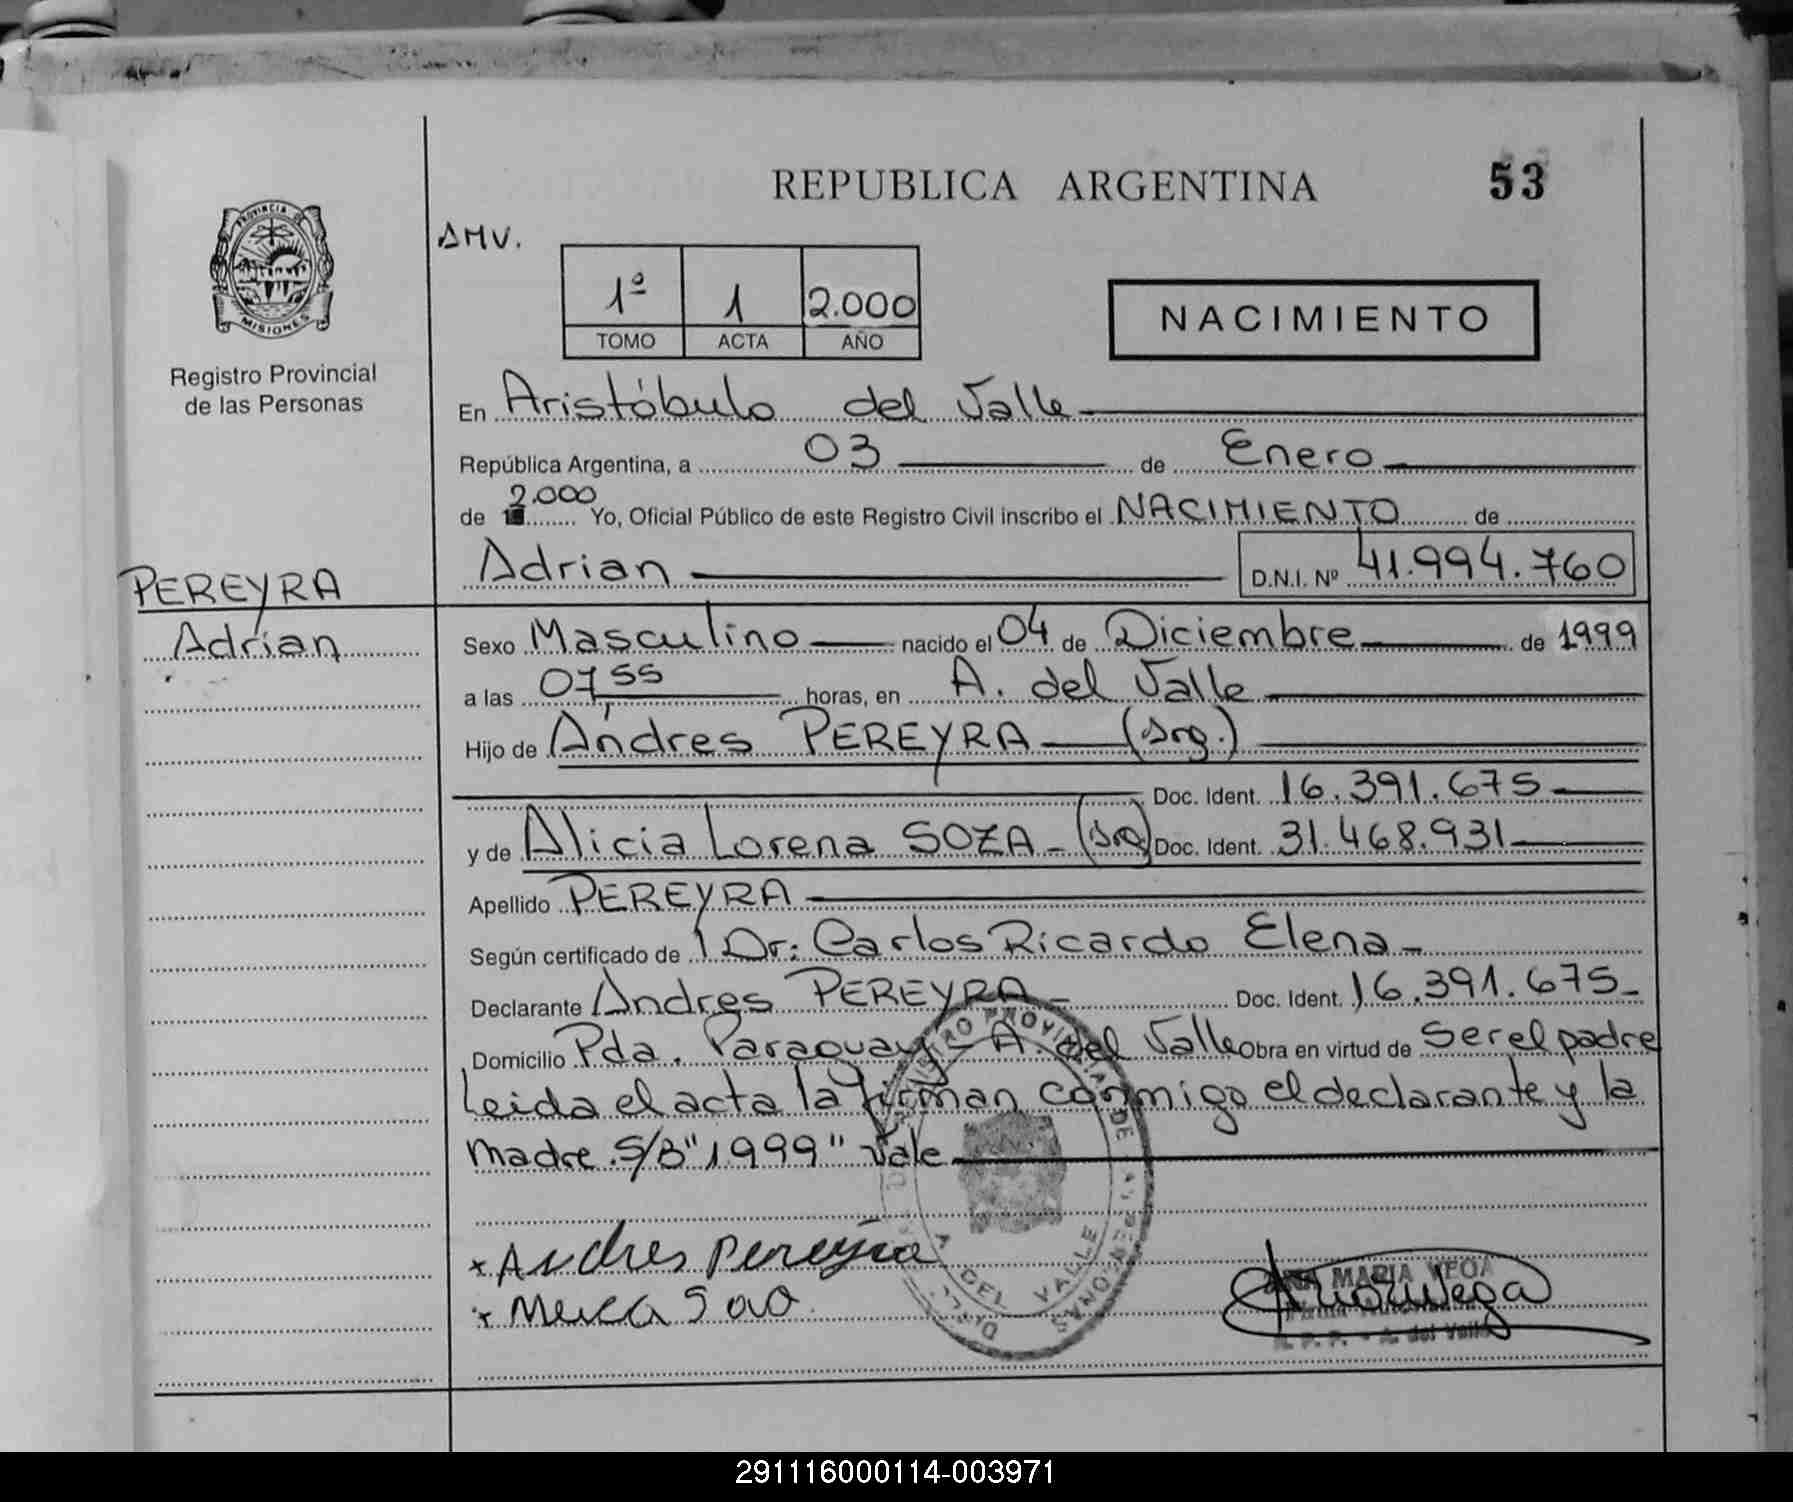 REPUBLICA ARGENTINA 53
PROVINCIA DE
MISIONES
Registro Provincial
de las Personas
AMV.
1º 1 2.000
TOMO ACTA AÑO
NACIMIENTO
En Aristóbulo del Valle
República Argentina, a 03 de Enero
de 2.000 Yo, Oficial Público de este Registro Civil inscribo el NACIMIENTO de
Adrian D.N.I. Nº 41.994.760
PEREYRA
Adrian
Sexo Masculino nacido el 04 de Diciembre de 1999
a las 07,55 horas, en A. del Valle
Hijo de Andres PEREYRA (Arg.)
Doc. Ident. 16.391.675
y de Alicia Lorena SOZA - (Arg) Doc. Ident. 31.468.931
Apellido PEREYRA
Según certificado de Dr: Carlos Ricardo Elena
Declarante Andres PEREYRA Doc. Ident. 16.391.675
Domicilio Pda. Paraguay - A. del Valle Obra en virtud de Ser el padre
Leida el acta la firman conmigo el declarante y la
madre. S/B "1.999" Vale
Andres Pereyra
MARIA VEGA
A. del Valle
A. DEL VALLE
291116000114-003971